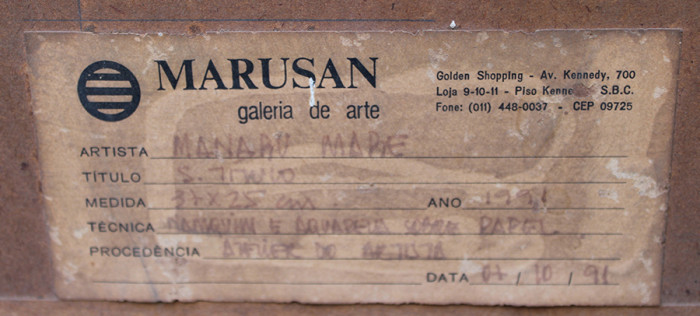 MARUSAN
galeria de arte
Golden Shopping - Av. Kennedy, 700
Loja 9-10-11 - Piso Kenne S.B.C.
Fone: (011) 448-0037 - CEP 09725
ARTISTA MANABU MABE
TÍTULO S. TITULO
MEDIDA 37X25 cm ANO 1991
TÉCNICA NANQUIN E AQUARELA SOBRE PAPEL
PROCEDÊNCIA ATELIER DO ARTISTA
DATA 07 / 10 / 91